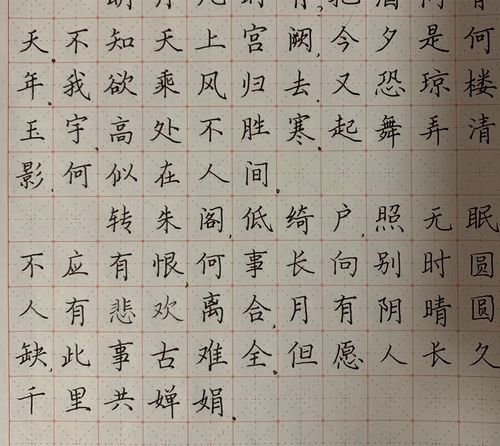 明月几时有,把酒问青
天.不知天上宫阙,今夕是何
年.我欲乘风归去,又恐琼楼
玉宇,高处不胜寒.起舞弄清
影,何似在人间.
转朱阁,低绮户,照无眠
不应有恨,何事长向别时圆
人有悲欢离合,月有阴晴圆
缺,此事古难全.但愿人长久
千里共婵娟.